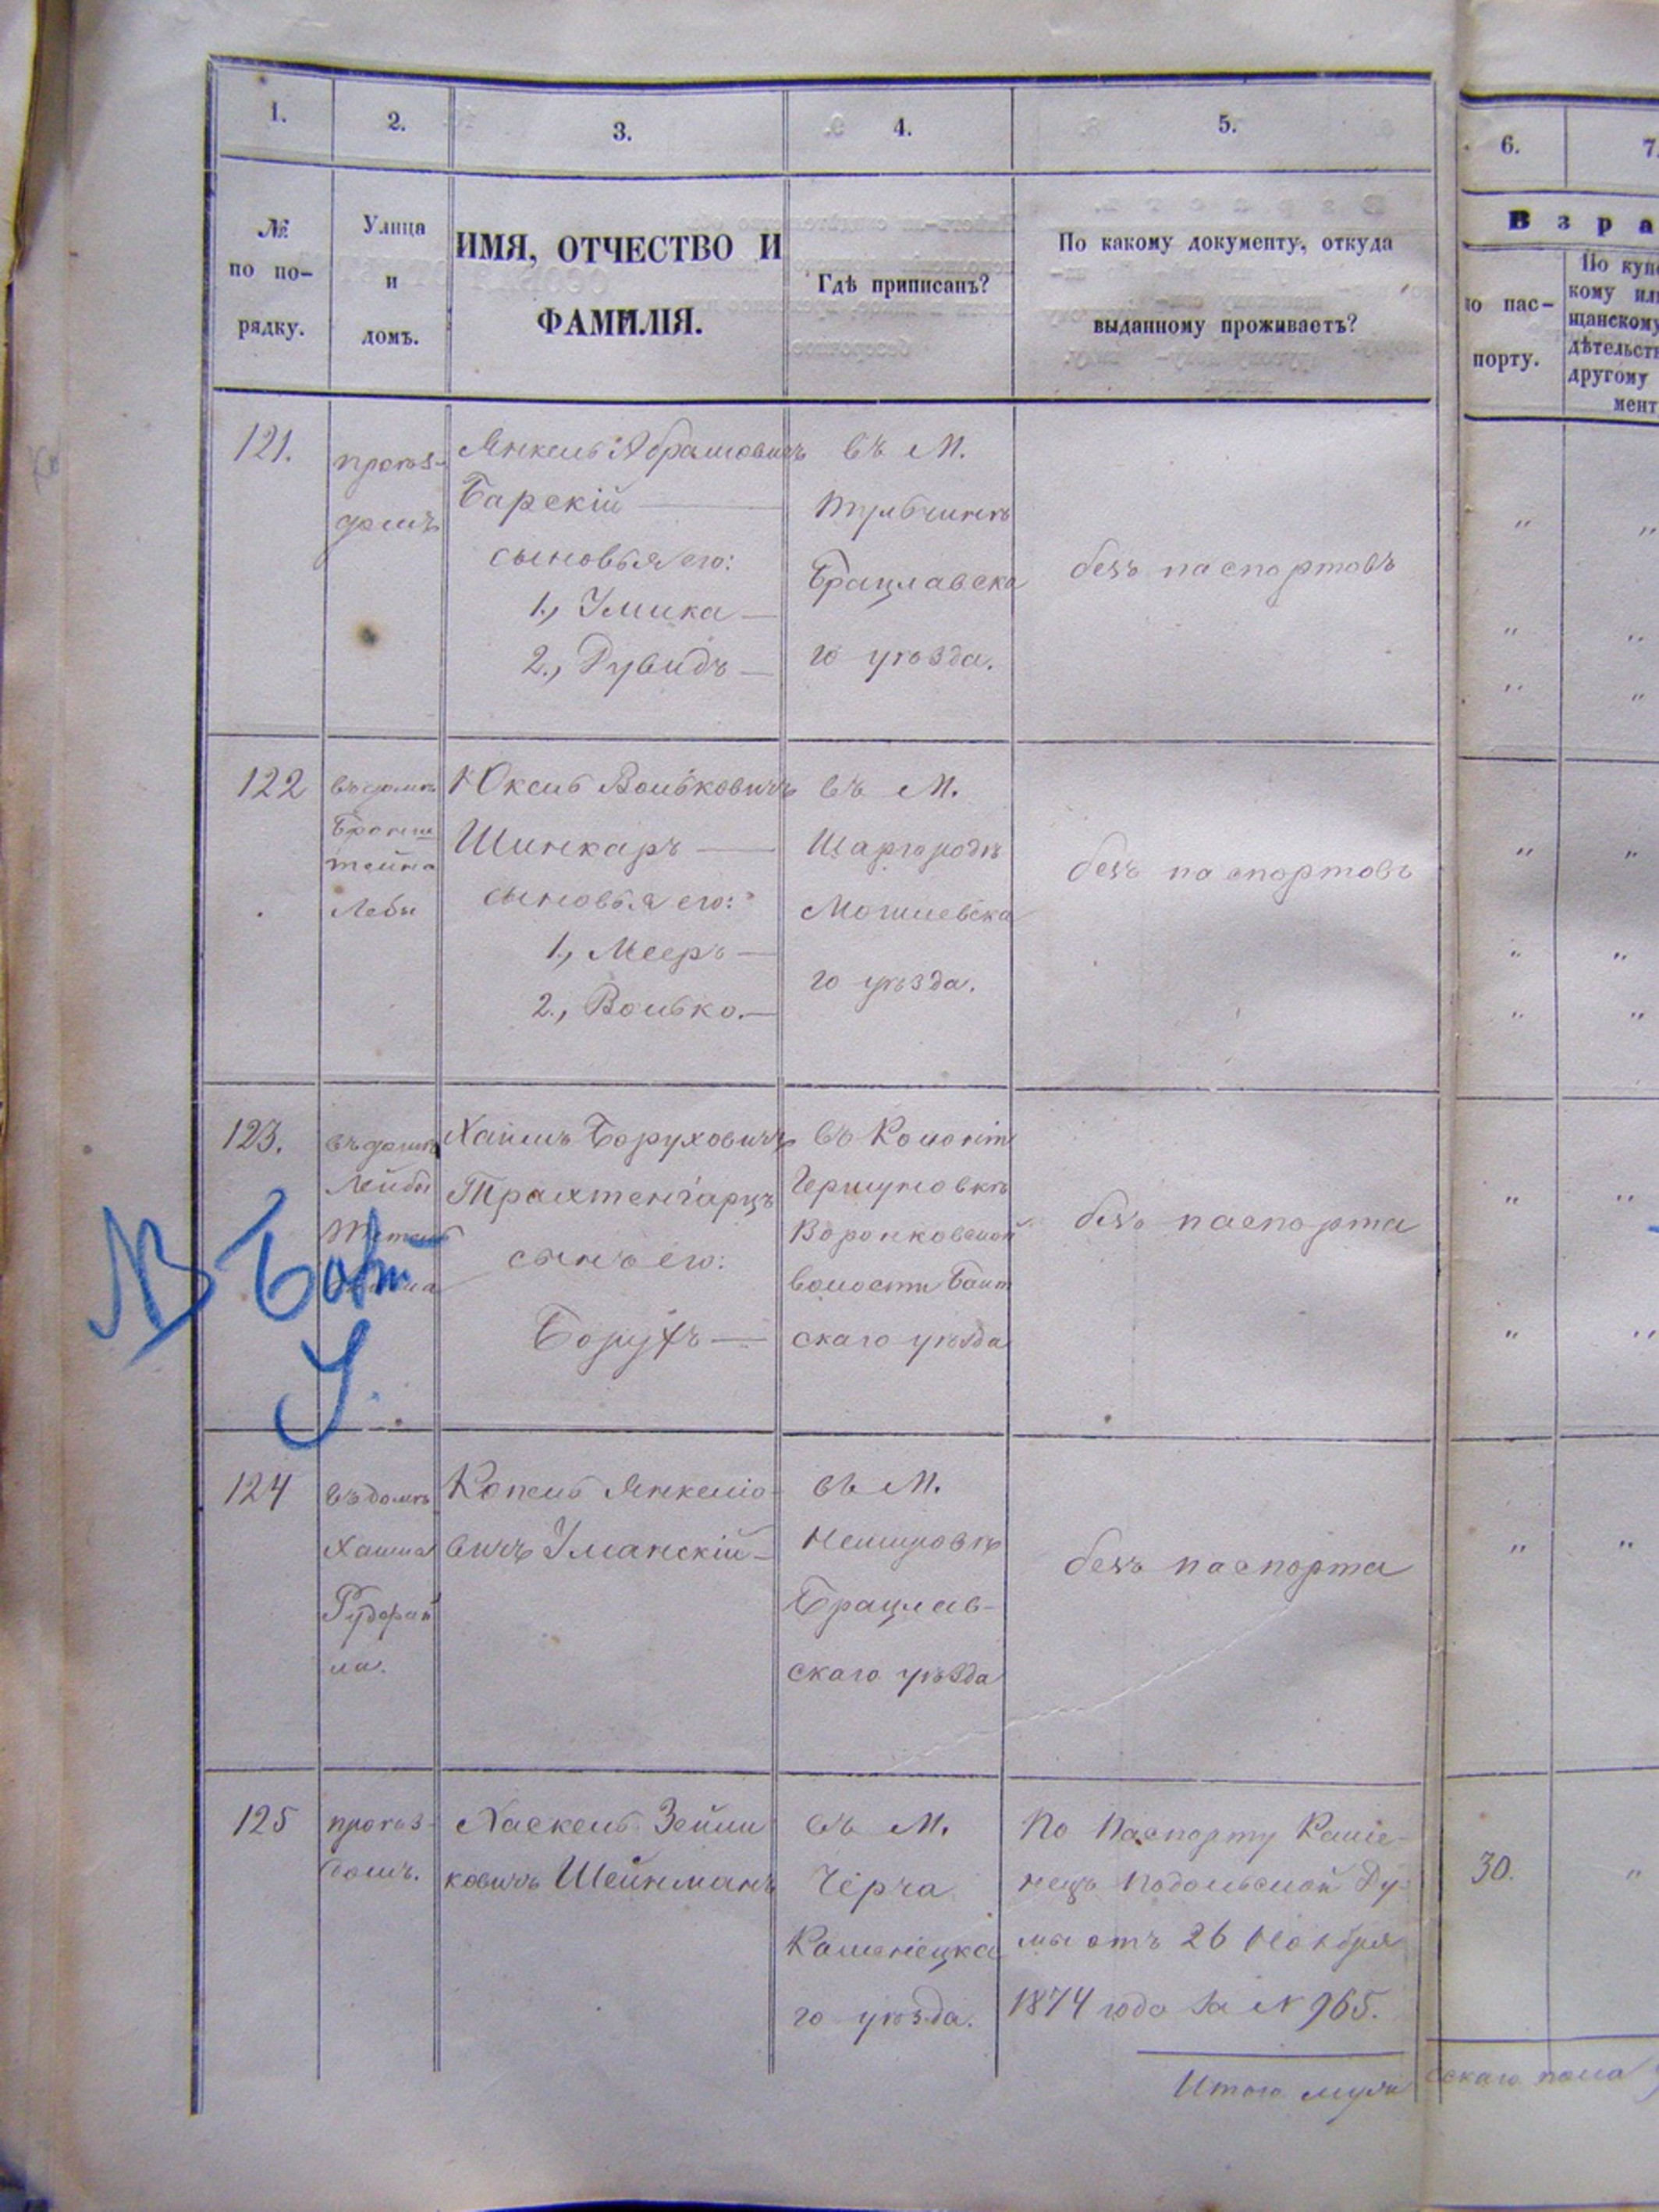 1.
2.
3.
4.
5.
6.
7.
№
по по-
рядку.
Улица
и
домъ.
ИМЯ, ОТЧЕСТВО И
ФАМИЛІЯ.
Гдѣ приписанъ?
По какому документу, откуда
выданному проживаетъ?
Взра
по пас-
порту.
По купе
кому или
щанскому
дѣтельств
другому
мент
121.
проѣз-
домъ
Янкель Абрамовичъ
Барскій —
сыновья его:
1., Умика —
2., Дувидъ —
въ М.
Тульчинѣ
Брацлавска
го уѣзда.
безъ паспортовъ
122
въ домѣ
Бронш
тейна
Лебы
Юкель Вольковичъ
Шинкаръ —
сыновья его:
1., Мееръ —
2., Волько. —
въ М.
Шаргородѣ
Могилевска
го уѣзда.
безъ паспортовъ
123.
въ домѣ
Лейбы
Хаимъ Боруховичъ
Трахтенгарцъ
сынъ его:
Борухъ —
въ Колоніи
Гершуновкѣ
Воронковской
волости Балт
скаго уѣзда
безъ паспорта
NB Балт
У.
124
въ домѣ
Хаима
Рудфай
ла.
Копель Янкеліо-
вичъ Уманскій —
въ М.
Немировѣ
Брацлав-
скаго уѣзда
безъ паспорта
125
проѣз-
домъ.
Хаскель Зейли
ковичъ Шейнманъ
въ М.
Черча
Каменецка
го уѣзда.
По Паспорту Камѣ-
нецъ Подольской Ду-
мы отъ 26 Ноября
1874 года за № 965.
30.
Итого мужескаго пола